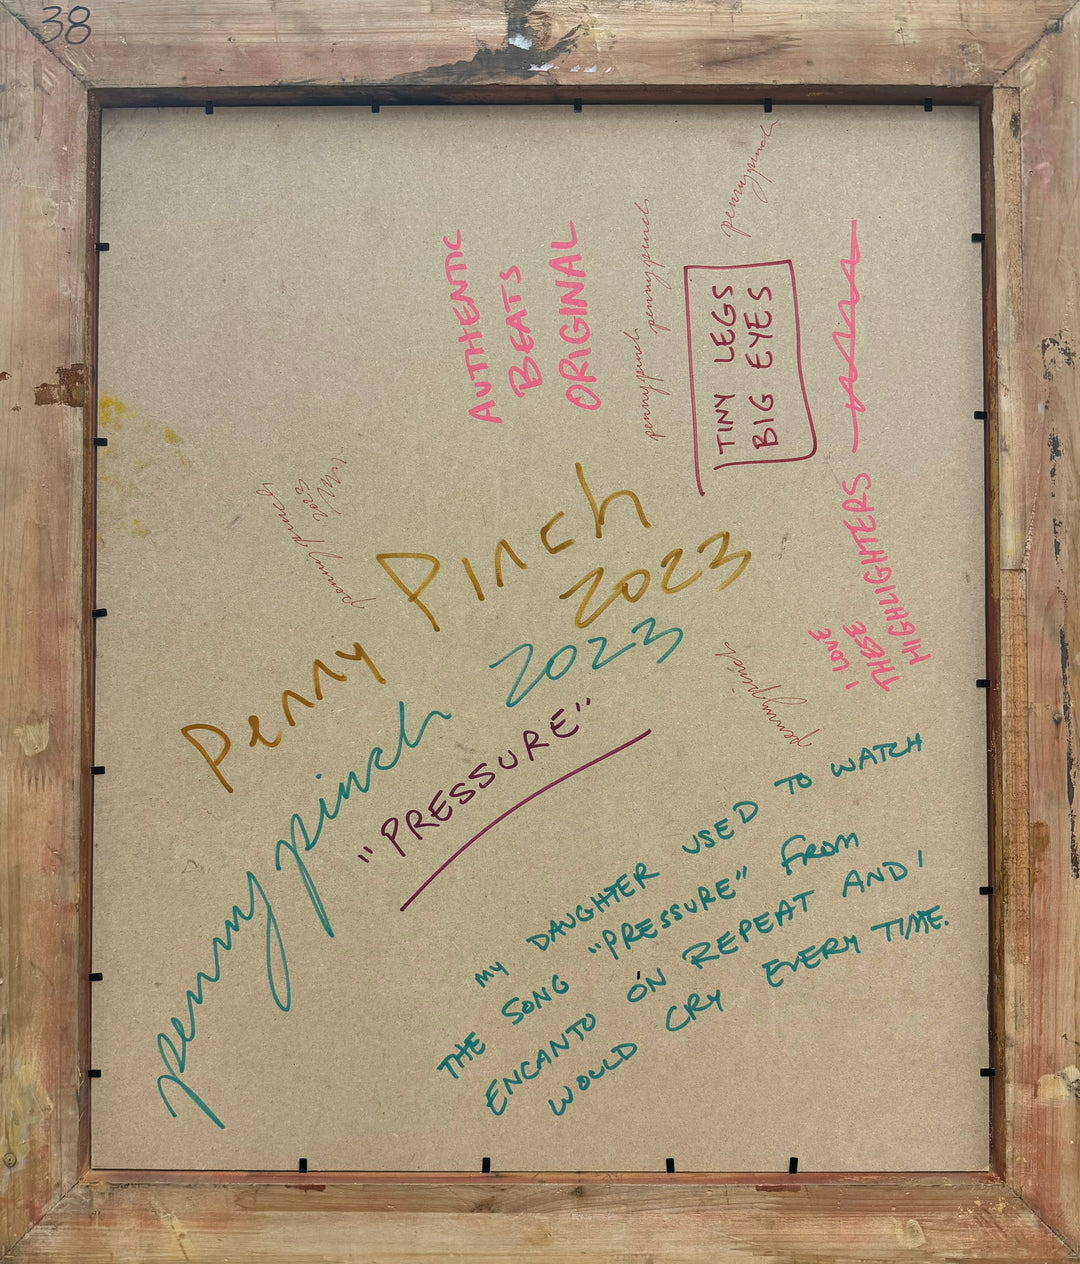 38
pennypinch
AUTHENTIC
BEATS
ORIGINAL
pennypinch pennypinch
TINY LEGS
BIG EYES
I LOVE
THESE
HIGHLIGHTERS
pennypinch
2023
Penny Pinch
2023
pennypinch 2023
"PRESSURE"
pennypinch
MY DAUGHTER USED TO WATCH
THE SONG "PRESSURE" FROM
ENCANTO ON REPEAT AND I
WOULD CRY EVERY TIME.